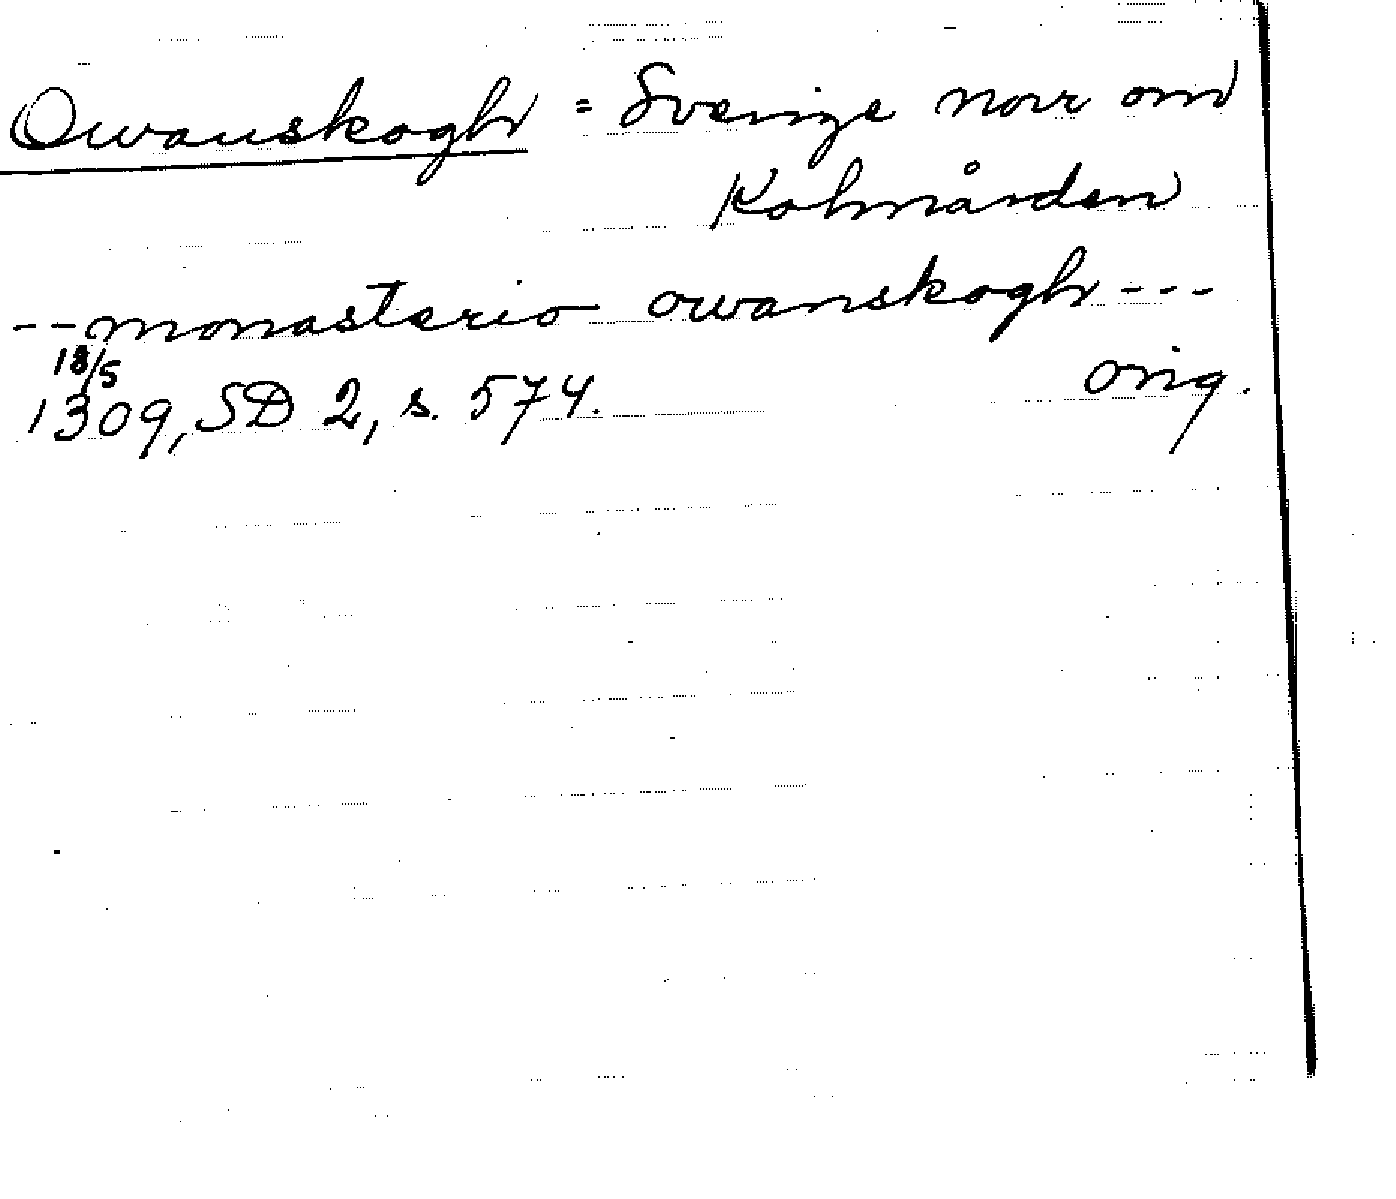 Owanskogh = Sverige norr om
Kolmården
--monasterio owanskogh---
18/5
1309, SD 2, s. 574. orig.